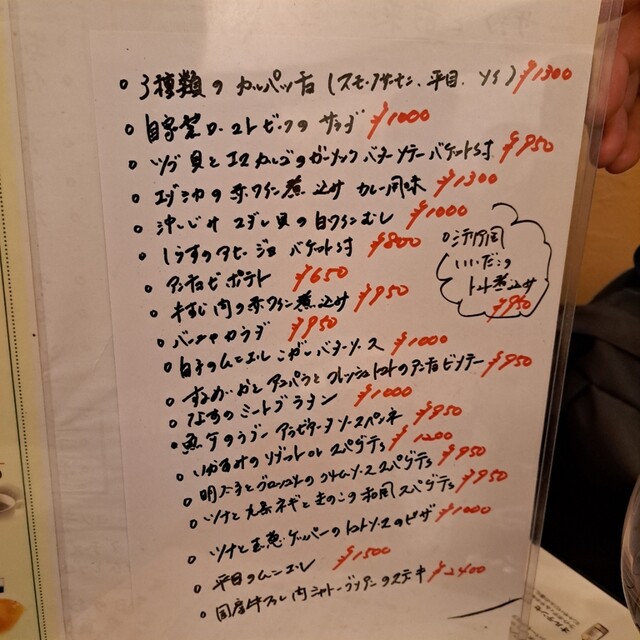 ○3種類のカルパッチョ(スモークサーモン、平目、ソイ) ¥1300
○自家製ローストビーフのサラダ ¥1000
○ツブ貝とエスカルゴのガーリックバターソテー バケット付 ¥950
○エゾシカの赤ワイン煮込み カレー風味 ¥1300
○沖しじみ ムール貝の白ワインむし ¥1000
○しらすのアヒージョ バケット付 ¥800
○アンチョビポテト ¥650
○牛すじ肉の赤ワイン煮込み ¥950
○バーニャカウダ ¥950
○白子のムニエル こがしバターソース ¥1000
○アスパラとフレッシュトマトのアンチョビソテー ¥950
○なすのミートグラタン ¥1000
○アラビアータソースペンネ ¥950
○いかすみのリゾット or スパゲティ ¥1200
○明太子とブロッコリーのクリームソーススパゲティ ¥950
○ツナと九条ネギときのこの和風スパゲティ ¥950
○ツナと玉葱、ケッパーのトマトソースのピザ ¥1000
○平目のムニエル ¥1500
○国産牛ヒレ肉シャトーブリアンのステーキ ¥2400
いいだこの
トマト煮込み
¥950